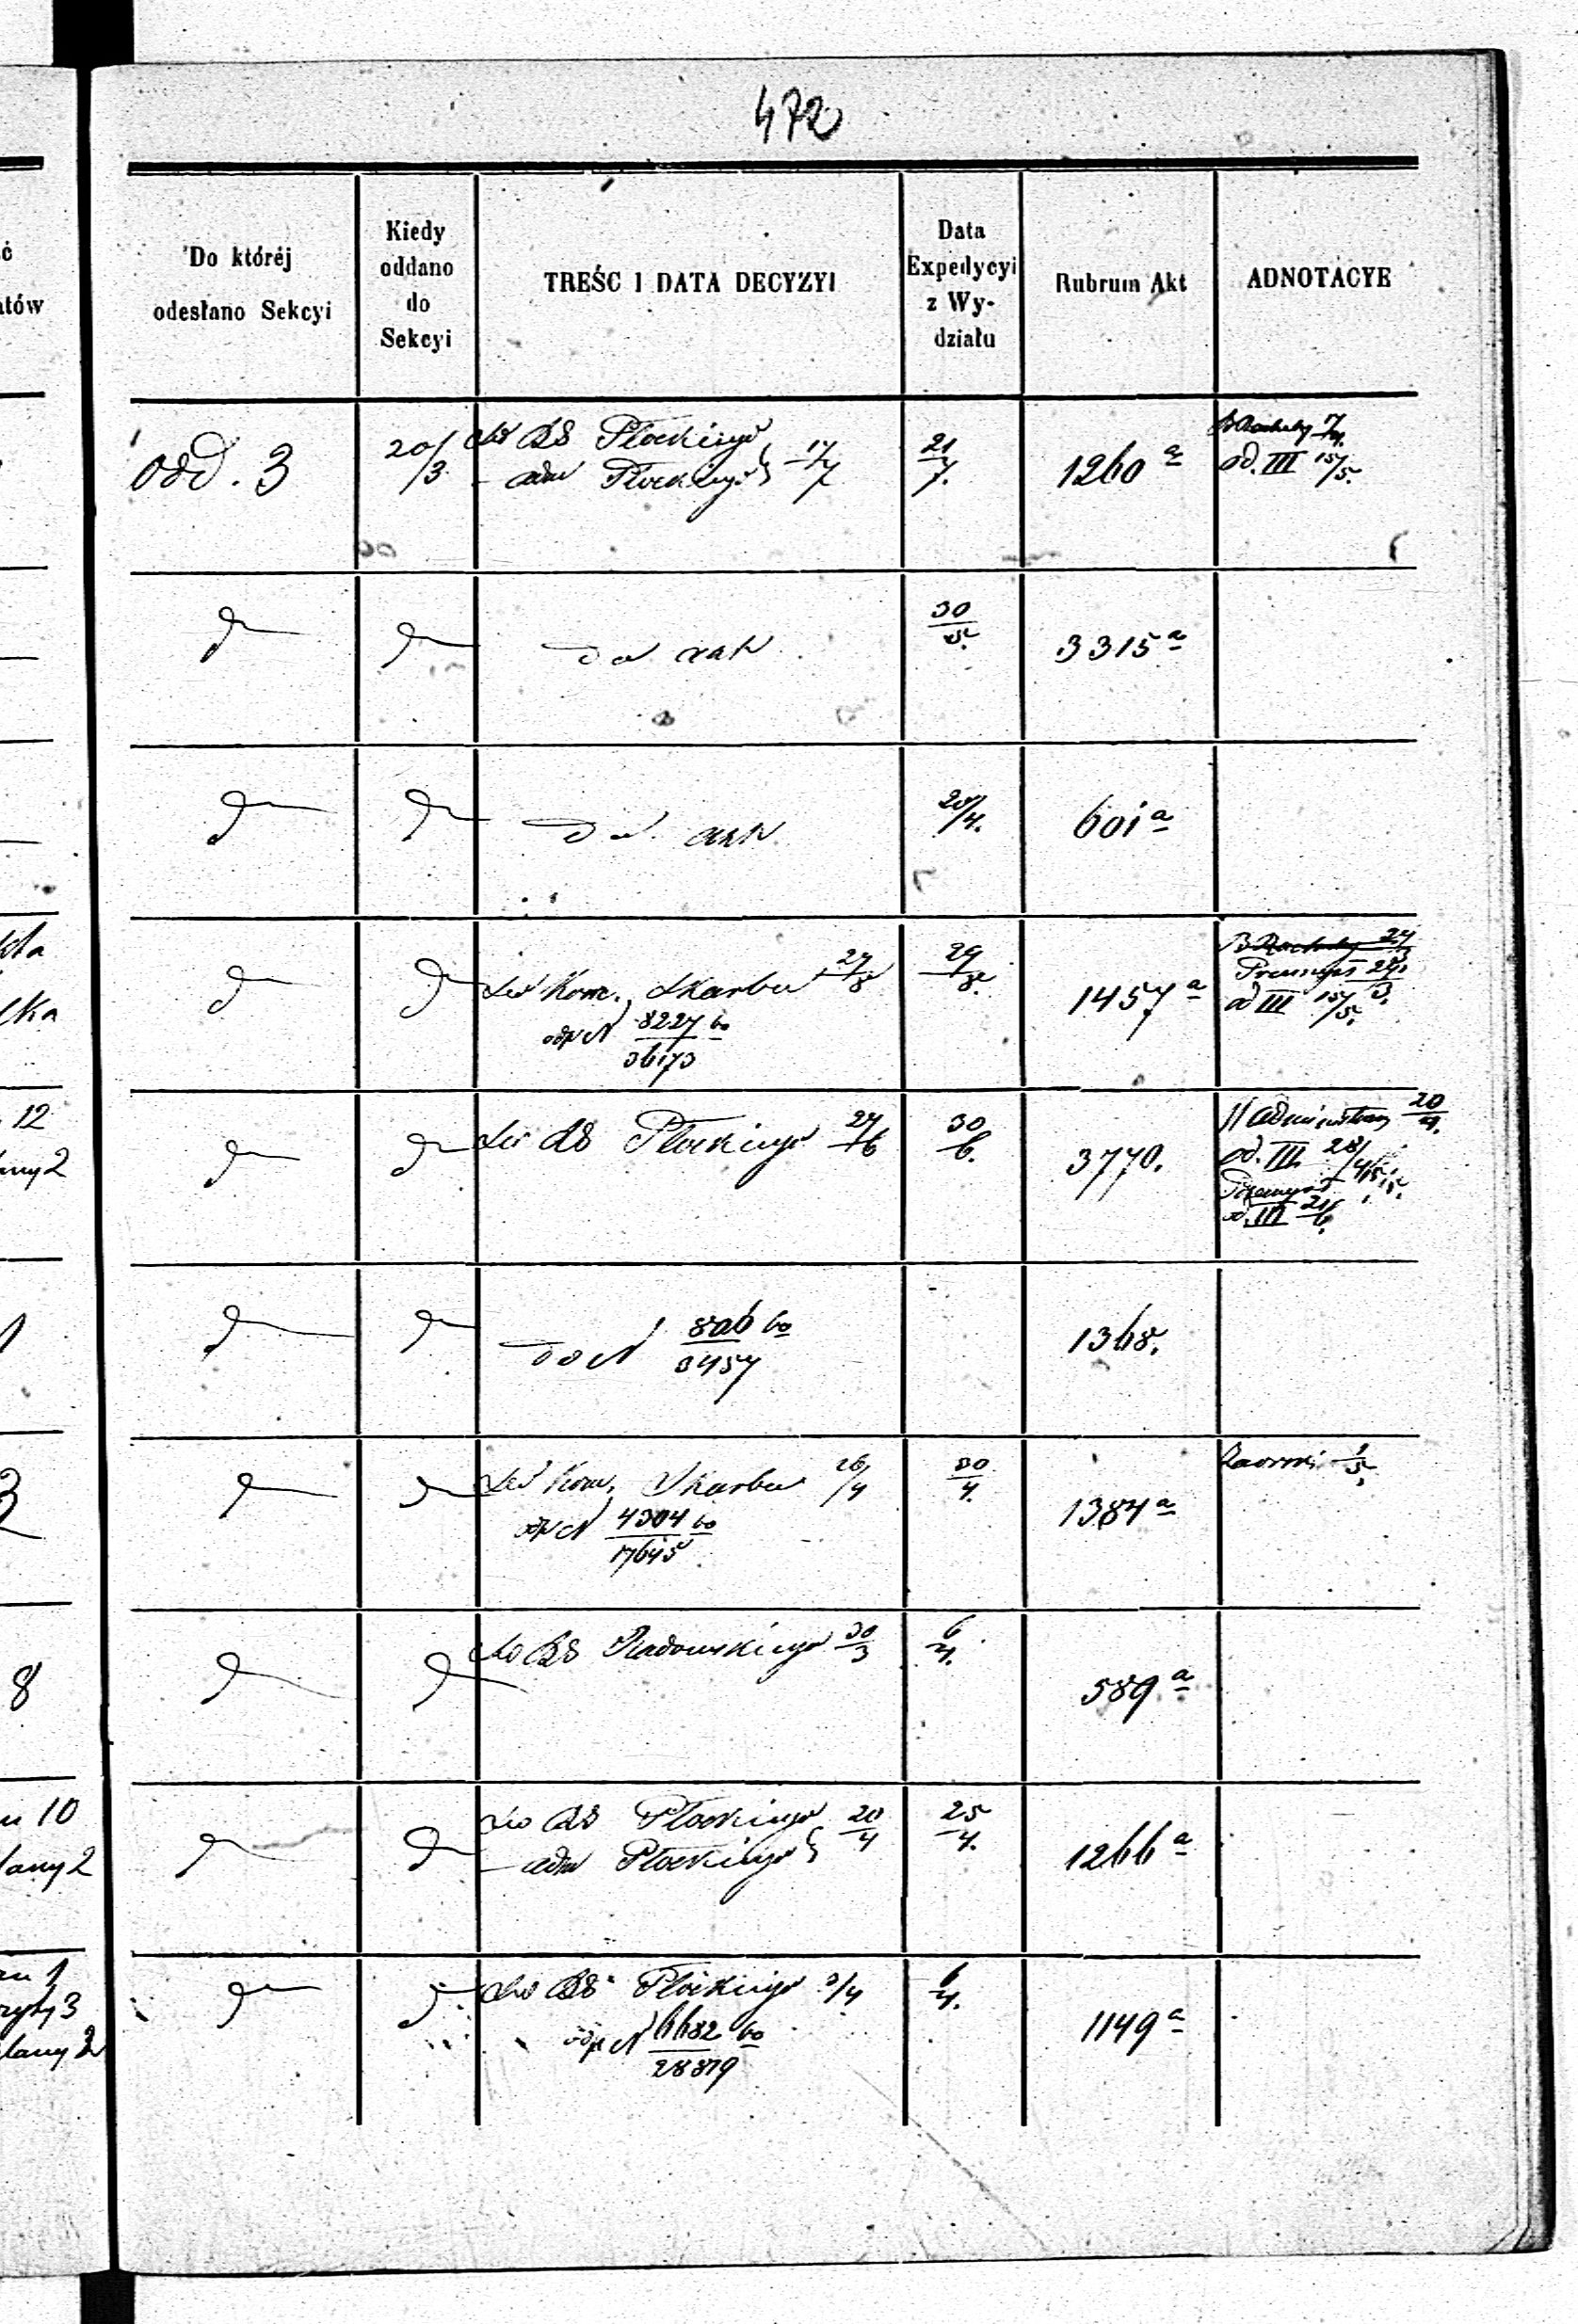 472
Do któréj
odesłano Sekcyi
Kiedy
oddano
do
Sekcyi
TREŚC I DATA DECYZYI
Data
Expedycyi
z Wy-
działu
Rubrum Akt
ADNOTACYE
odd. 3
20/3
Do RS Płockiego
— adm Płockiego 17/7
21/7.
1260 a
17/4.
od. III 15/5.
do
do
do akt
30/5.
3315 a
do
do
do akt
20/4.
601 a
do
do
Do Kom. Skarbu 27/8
odp N 8227/36173 60
29/8.
1457 a
od III 15/5.
do
do
Do RS Płockiego 27/6
30/6.
3770.
20/4.
od. III 28/4
od. III 21/6.
do
do
do N 806/3457 60
1368.
do
do
Do Kom. Skarbu 26/4
odp N 4304/17645 60
30/4.
1384 a
do
do
Do RS Radomskiego 30/3
6/4.
589 a
do
do
Do RS Płockiego
— adm Płockiego 20/4
25/4.
1266 a
do
do
Do RS Płockiego 3/4
odp N 6682/28879 60
6/4.
1149 a
12
8
10